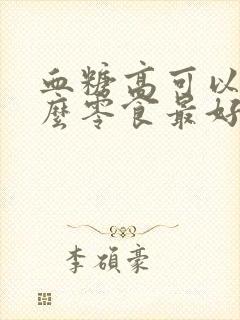 血糖高可以
麼零食最好
李碩豪